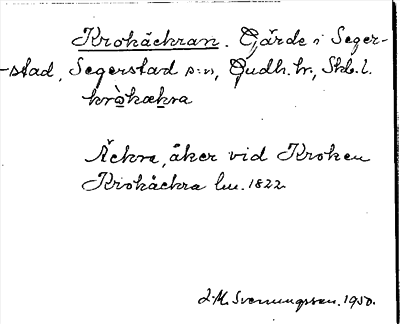 Krokäckran. Gärde i Seger-
-stad, Segerstad s:n, Gudh. hr, Skb. l.
kròkækra
Äckra, åker vid Kroken
Krokäckra lm. 1822
J.M. Svenungsson. 1950.